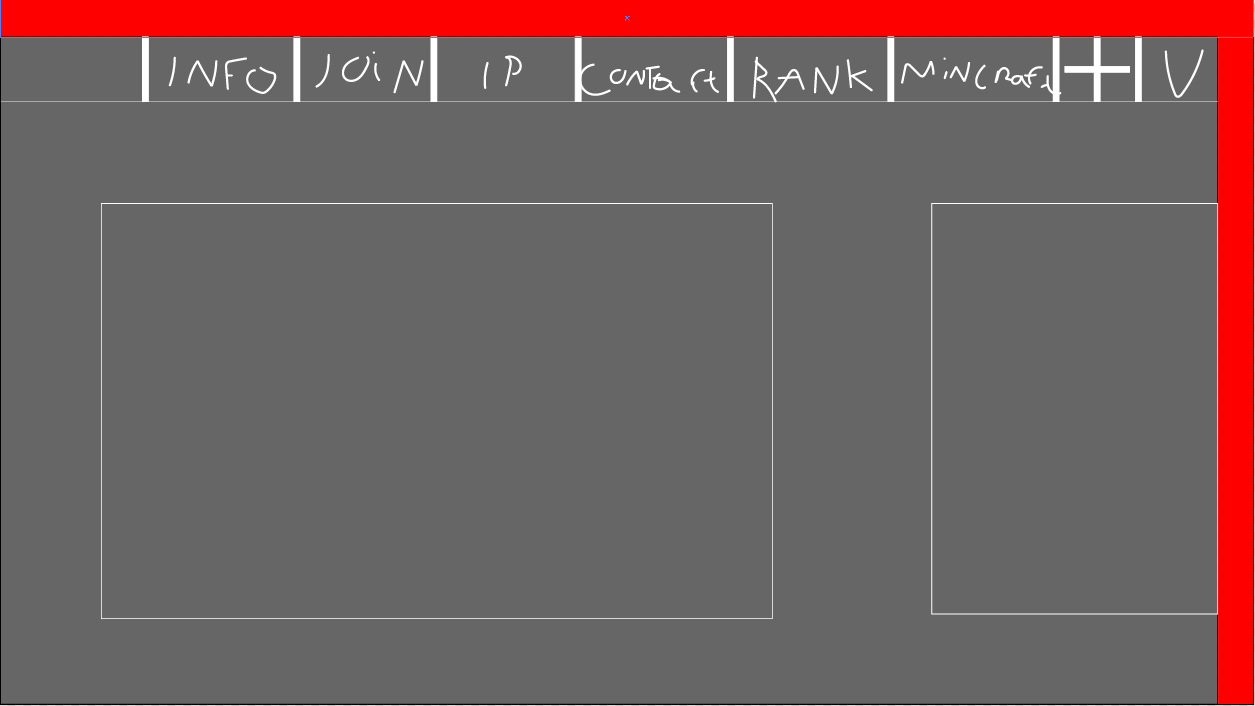 INFO JOiN IP CONTact RANK MiNCraft + V